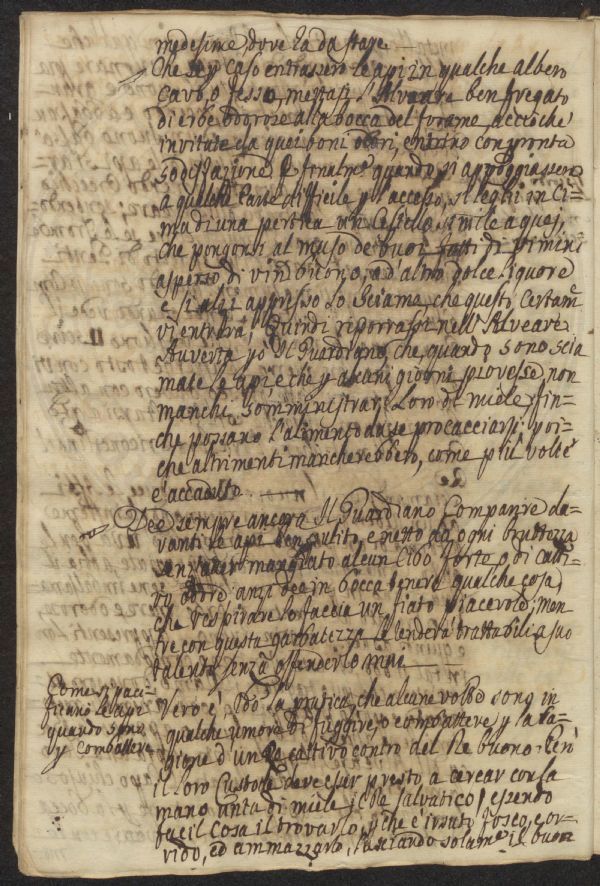 medesime, dove ha da stare
Che se p caso entrassero le api in qualche albero
cavo, o fesso, mettasi l'Alveare ben fregato
di erbe odorose alla bocca del forame, accioche
invitate da quei boni odori, entrino con pronta
sodisfazione. E finalme quando si appoggiassero
a qualche parte difficile p l'accesso, si leghi in ci=
ma di una pertica un Cestello simile a quei,
che pongonsi al muso de buoi
asperso di vino buono, ad altro dolce liquore
e si alzi appresso lo Sciame, che questo certame
vi entrerà, Quindi riporrassi nell'Alveare.
Avverta po Il Guardiano, che quando sono scia=
mate le api, e che p alcuni giorni piovesse, non
manchi somministrar loro di miele, fin=
che possano l'alimento da se procacciarsi, poi=
che altrimenti mancherebbero, come più volte
è accaduto
Dee sempre ancora Il Guardiano Comparire da=
vanti le api ben pulito, e netto da ogni bruttezza
senz'aver mangiato alcun Cibo forte, o di catti=
vo odore anzi dee in bocca tenere qualche cosa,
che respirare lo faccia un fiato piacevole, men=
tre con questa garbatezza le renderà trattabili a suo
talento senza offenderlo mai
Come si paci=
ficano le api
quando sono
p combattere
Vero è, Ido la pratica, che alcune volte sono in
qualche umore di fuggire, o combattere p la ca=
gione d'un Re cattivo contro del Re buono. Però
il loro Custode deve esser presto a cercar con la
mano unta di miele il Re salvatico, essendo
facil cosa il trovarlo, pche è irsuto, fosco, e or=
rido, ed ammazzarlo, lasciando solame il buon